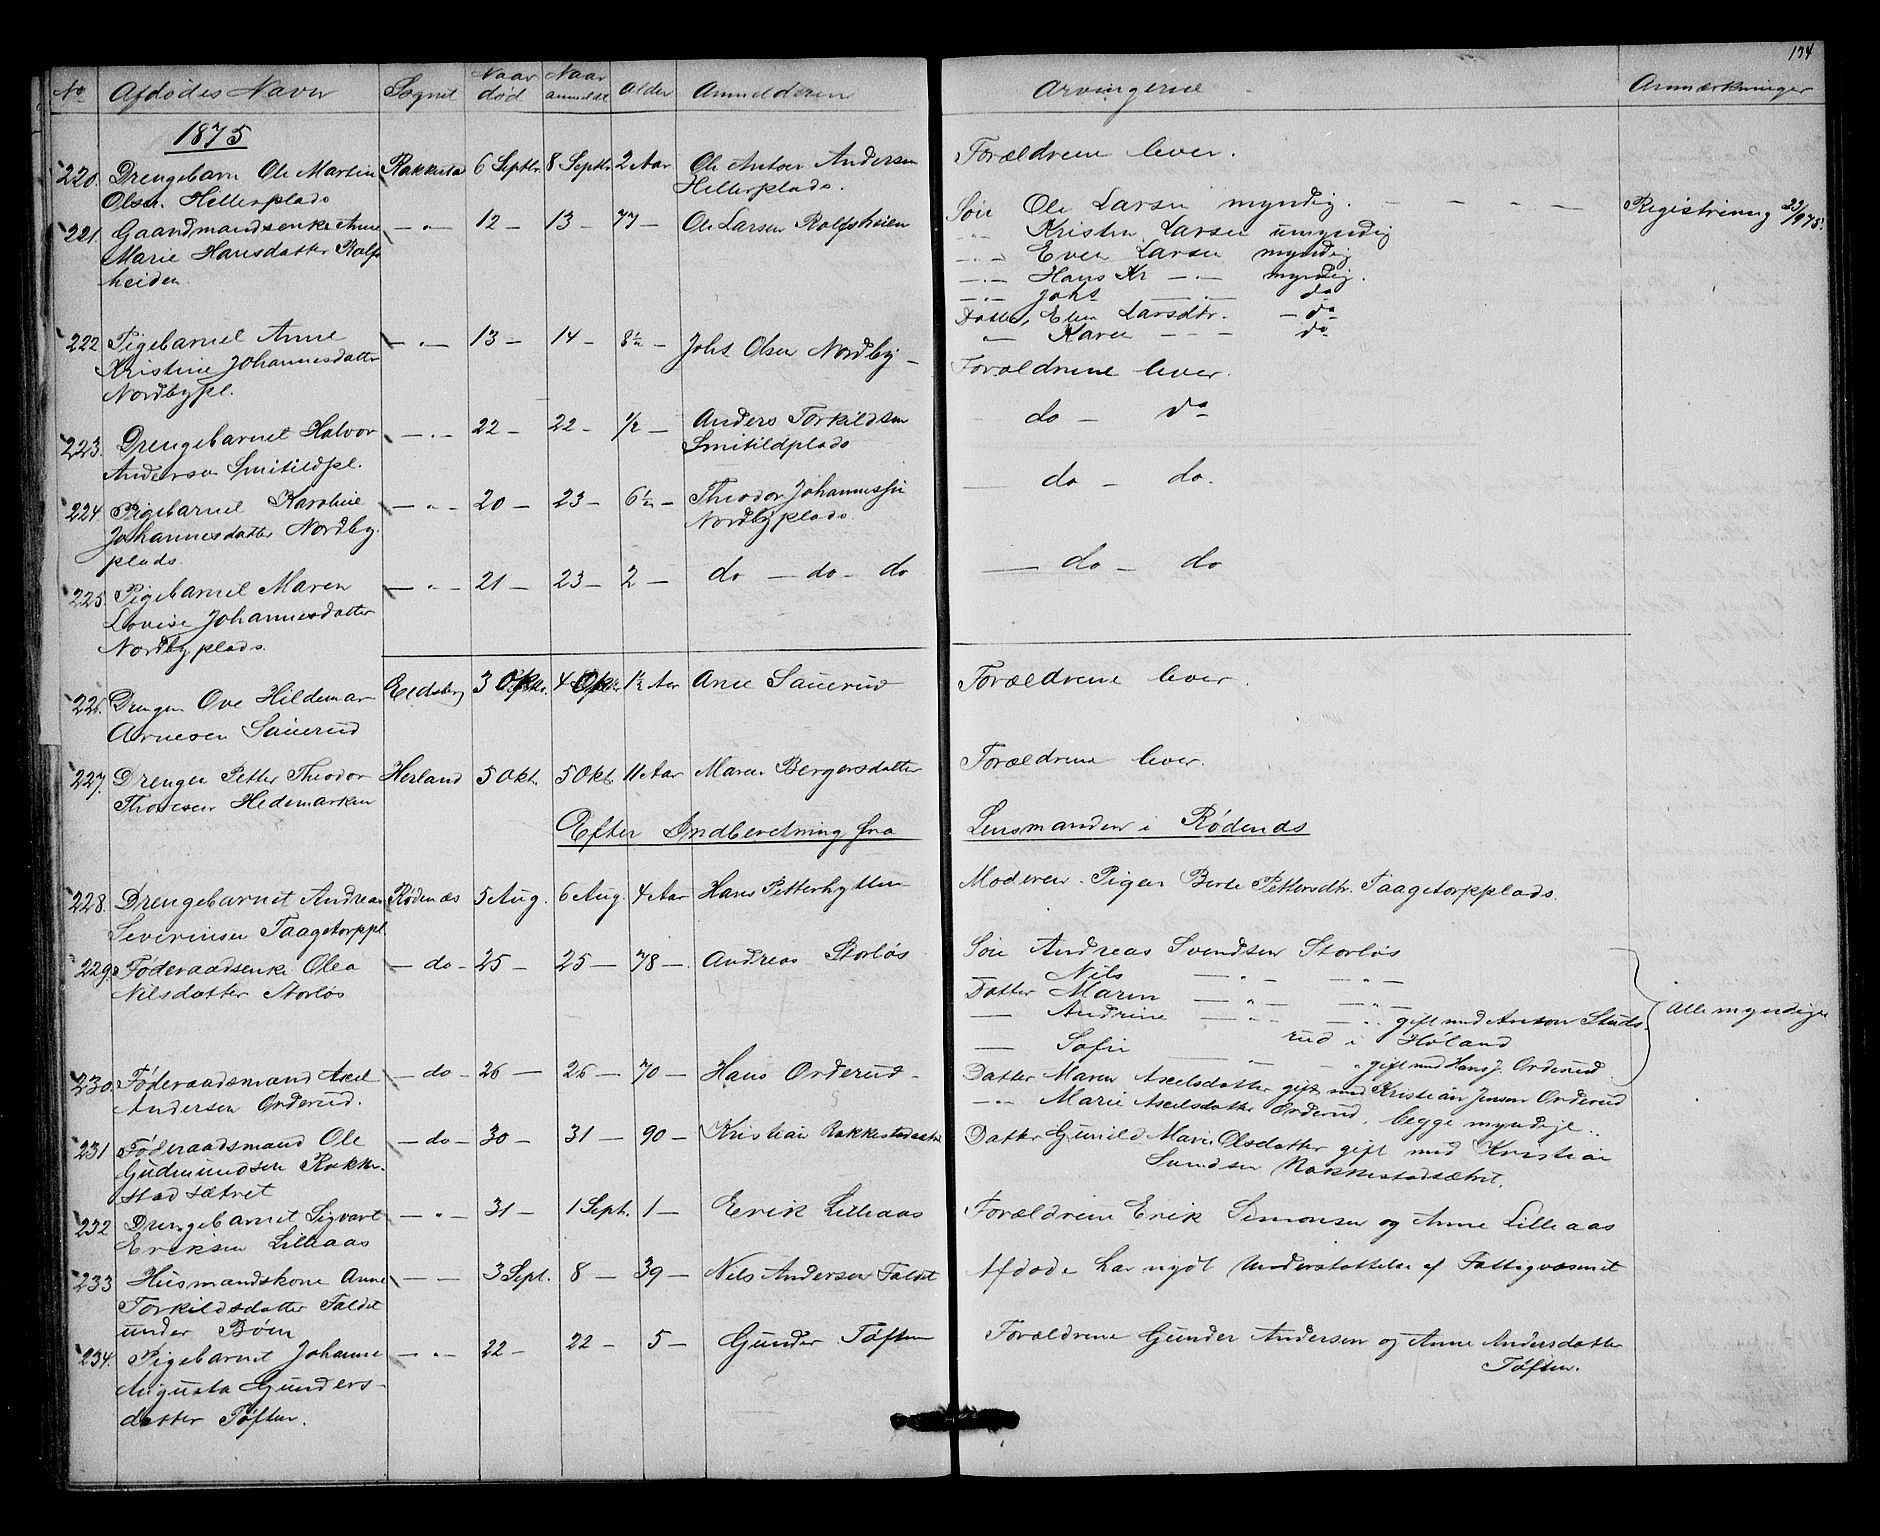 174
No Afdødes Navn Sognet Naar død Naar anmeldt Alder Anmelderen Arvingerne Anmærkninger
1875
220. Drengebarn Ole Martin Rakkestad 6 Septbr. 8 Septbr. 2 Aar Ole Antson Andersen Forældrene lever.
Olsen. Hellerplads Hellerplads.
221. Gaardmandsenke Anne — " — 12 — 13 — 77 — Ole Larsen Rolfsheien Søn Ole Larsen myndig. — — — — Registrering 23/9 75.
Marie Hansdatter Rolfs — " — Kristen Larsen umyndig
heiden. — " — Even Larsen myndig
— " — Hans Kr — " — myndig.
— " — Johs — " — do
Datter, Elen Larsdtr. — do
— Karen — — — do
222 Pigebarnet Anne — " — 13 — 14 — 8½ — Johs Olsen Nordby — Forældrene lever.
Kristine Johannesdatter
Nordbypl.
223. Drengebarnet Halvor — " — 22 — 22 — ½ — Anders Torkildsen — do — do
Andersen Smitildpl. Smitildplads
224 Pigebarnet Karoline — " — 20 — 23 — 6½ — Theodor Johannessen — do — do.
Johannesdatter Nordby Nordbyplads.
plads.
225. Pigebarnet Maren — " — 21 — 23 — 2 — do — do — do — do — do
Lovise Johannesdatter
Nordbyplads.
226. Drengen Ove Hildemar Eidsberg 3 Oktbr. 4 Oktbr. 1½ Aar Arne Sauerud Forældrene lever.
Arnesen Sauerud
227. Drengen Petter Theodor Herland 5 Okt. 5 Okt. 11 Aar Maren Bergersdatter Forældrene lever.
Thoresen Hedemarken
Efter Indberetning fra Lensmanden i Rødenæs
228. Drengebarnet Andreas Rødenæs 5 Aug. 6 Aug. 4 Aar Hans Petterhytten Moderen Pigen Berte Pettersdtr. Taagetorpplads.
Severinsen Taagetorppl.
229. Føderaadsenke Olea — do — 25 — 25 — 78 — Andreas Storløs Søn Andreas Svendsen Storløs
Nilsdatter Storløs — Nils — " — — " —
Datter Maren — " — — " —
— Andrine — " — — " — gift med Anton Studs- Alle myndige
— Sofie rud i Høland
— " — gift med Hans J. Orderud
230. Føderaadsmand Axel — do — 26 — 26 — 70 — Hans Orderud — Datter Maren Axelsdatter gift med Kristian Jensen Orderud
Andersen Orderud. — " — Marie Axelsdatter Orderud, begge myndige.
231 Føderaadsmand Ole — do — 30 — 31 — 90 — Kristian Rakkestadsætre Datter Gunild Marie Olsdatter gift med Kristian
Gudmundsen Rakke- Rakkestadsætret.
stadsætret
232 Drengebarnet Sigvart — " — 31 — 1 Sept. 1 — Erik Lilleaas Forældrene Erik Simonsen og Anne Lilleaas
Eriksen Lilleaas
233 Husmandskone Anne — — 3 Sept. 8 — 39 — Nils Andersen Faldet Afdøde har nydt Understøttelse af Fattigvæsenet
Torkildsdatter Faldet
under Bøen
234. Pigebarnet Johanne — " — 22 — 22 — 5 — Gunder Tøften Forældrene Gunder Andersen og Anne Andersdatter
Augusta Gunders- Tøften.
datter Tøften.